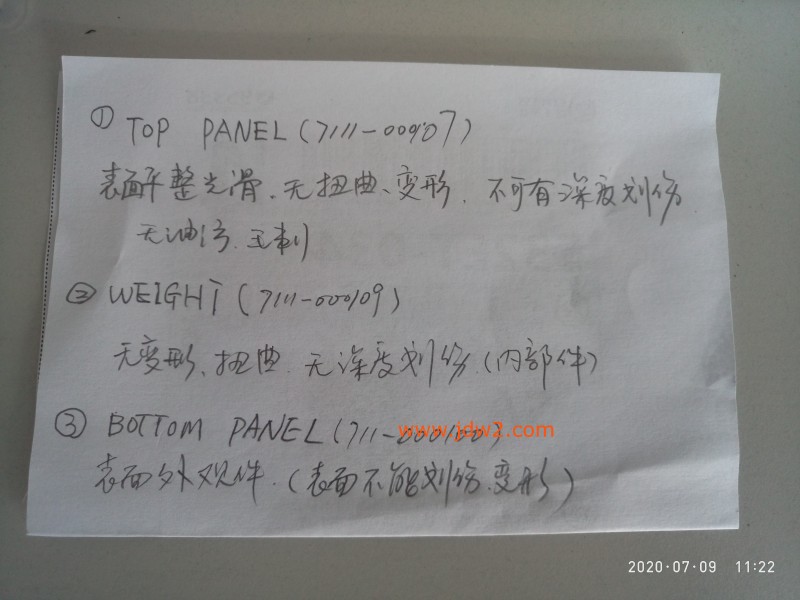 ① TOP PANEL(7111-00907)
表面平整光滑、无扭曲、变形、不可有深度划伤
无油污、毛刺
② WEIGHT(7111-000109)
无变形、扭曲、无深度划伤(内部件)
③ BOTTOM PANEL(711-
www.jdw2.com
表面外观件、(表面不能划伤、变形)
2020·07·09 11:22